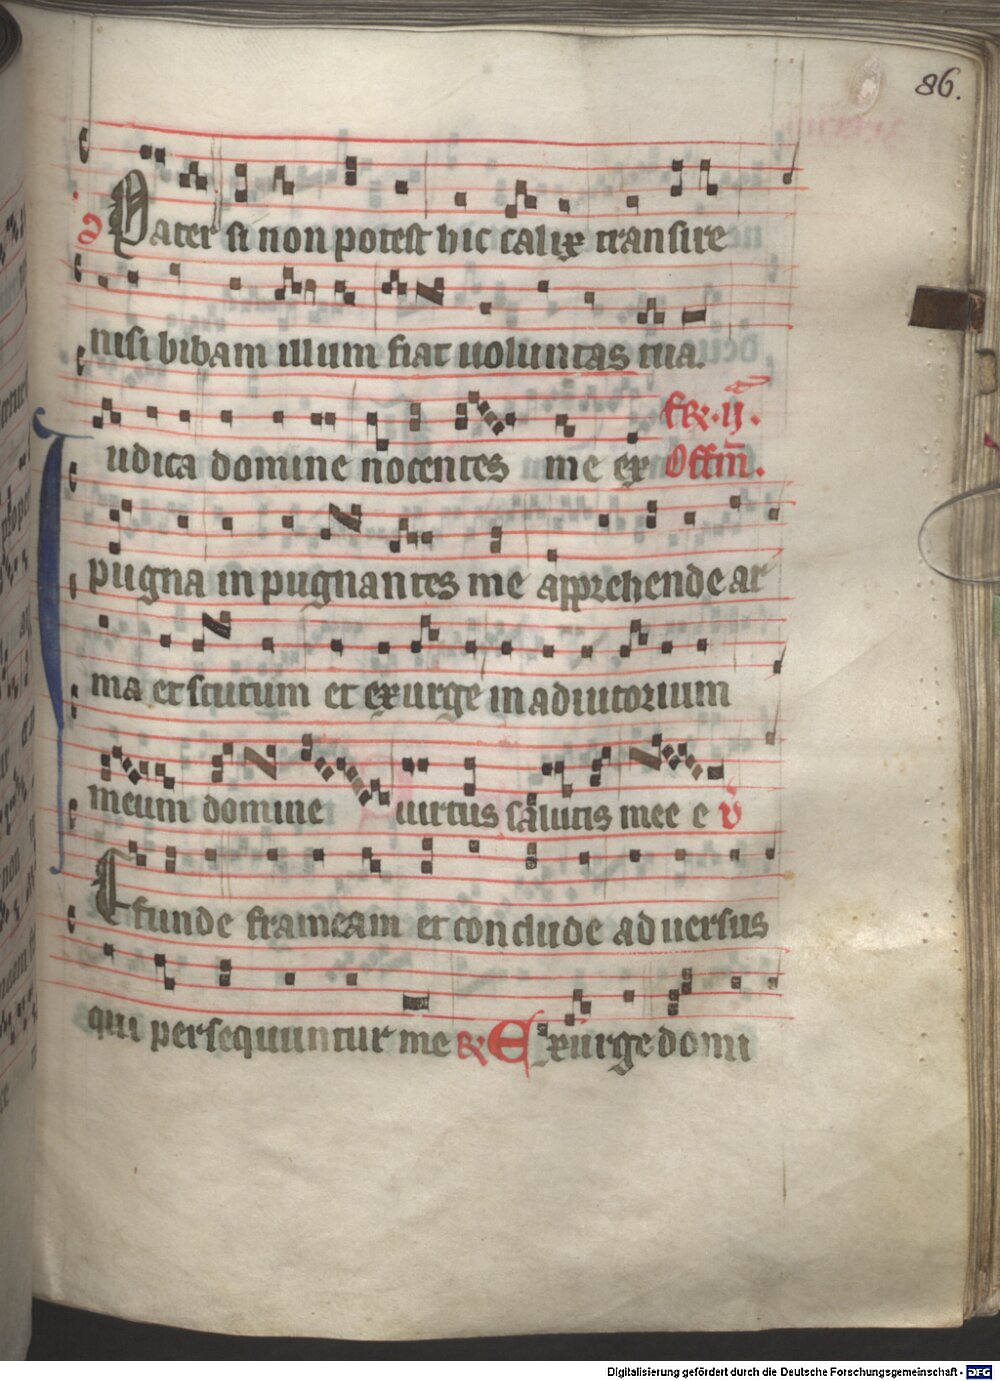 86.
Pater si non potest hic calix transire
nisi bibam illum fiat uoluntas tua.
fer. ij.
Iudica domine nocentes me ex Offm̄.
pugna in pugnantes me apprehende ar
ma et scutum et exurge in adiutorium
meum domine uirtus salutis mee e v̄
Effunde frameam et conclude aduersus
qui persequuntur me R Exurge domi
Digitalisierung gefördert durch die Deutsche Forschungsgemeinschaft - DFG